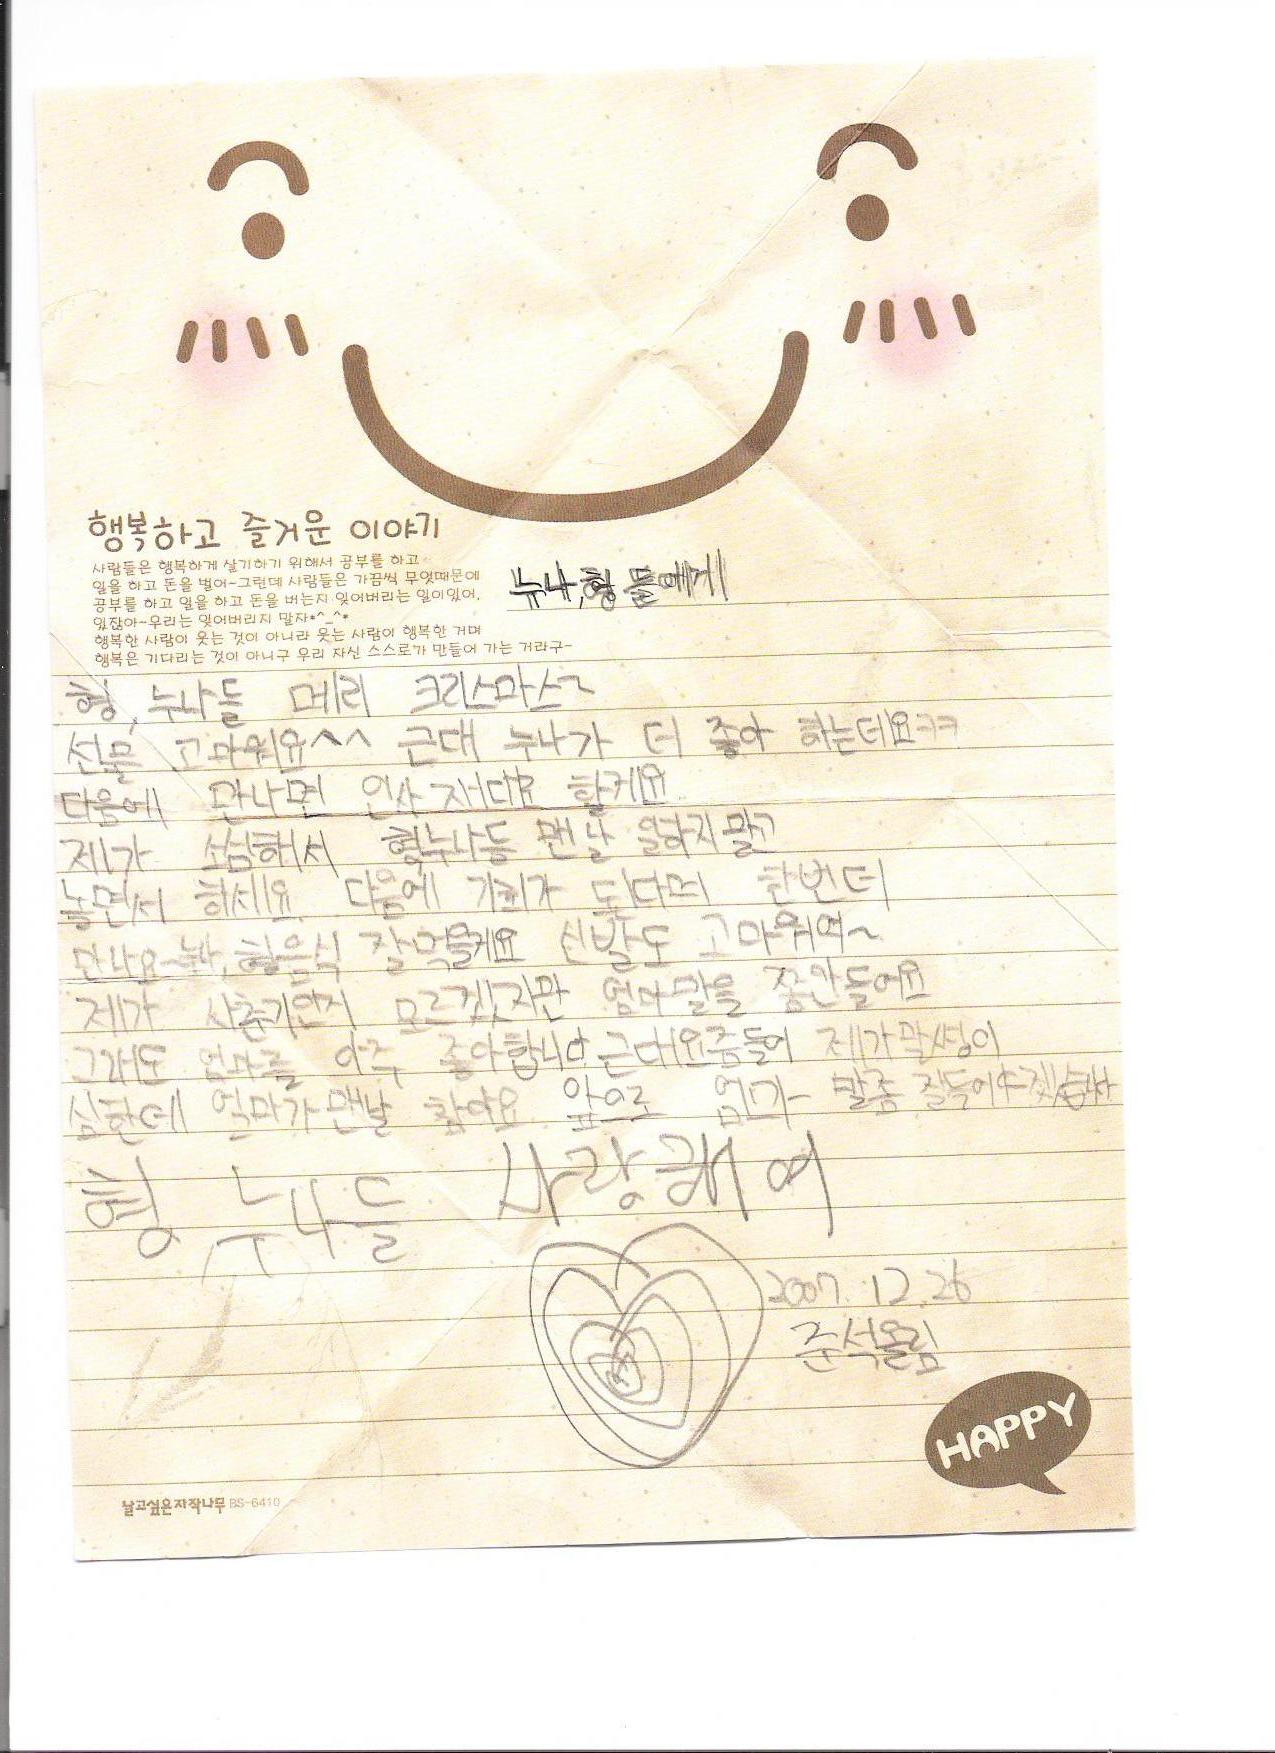 행복하고 즐거운 이야기
사람들은 행복하게 살기하기 위해서 공부를 하고
일을 하고 돈을 벌어~그런데 사람들은 가끔씩 무엇때문에
공부를 하고 일을 하고 돈을 버는지 잊어버리는 일이있어,
있잖아~우리는 잊어버리지 말자*^_^*
행복한 사람이 웃는 것이 아니라 웃는 사람이 행복한 거며
행복은 기다리는 것이 아니구 우리 자신 스스로가 만들어 가는 거라구~
누나,형들에게
형,누나들 메리 크리스마스~
선물 고마워요^^ 근대 누나가 더 좋아 하는데요ㅋㅋ
다음에 만나면 인사 재대로 할게요
제가 소심해서 형,누나들 맨날 일하지말고
놀면서 하세요. 다음에 기회가 된다면 한번더
만나요~누나,형음식 잘먹을게요 신발도 고마워여~
제가 사춘기인지 모르겠지만 엄마말을 쫌안들어요
그래도 엄마를 아주 좋아합니다 근대요즘들어 제가말썽이
심한데 엄마가맨날 참아요 앞으로 엄마 말좀 잘듣어
형 누나들 사랑해여
2007. 12. 26
준석올림
HAPPY
날고싶은자작나무 BS-6410